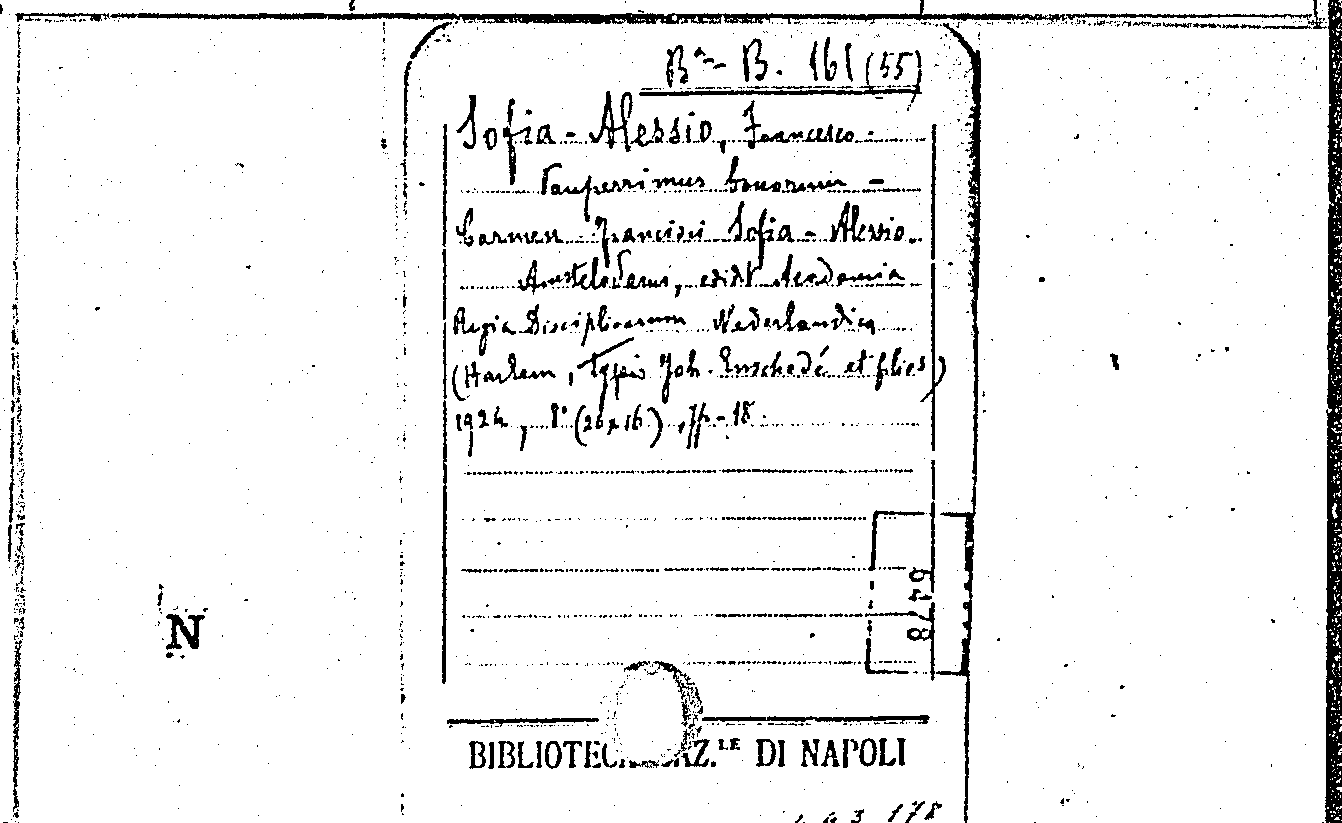 B. 161 (55)
Sofia-Alessio, Francesco.
Pauperrimus bonorum -
Carmen Francisci Sofia-Alessio.
Amstelodami, edidit Academia
Regia Disciplinarum Nederlandica
(Harlem, typis Joh. Enschedé et filios)
1924, 8° (26x16), pp-18.
6478
N
BIBLIOTECA NAZ.LE DI NAPOLI
178